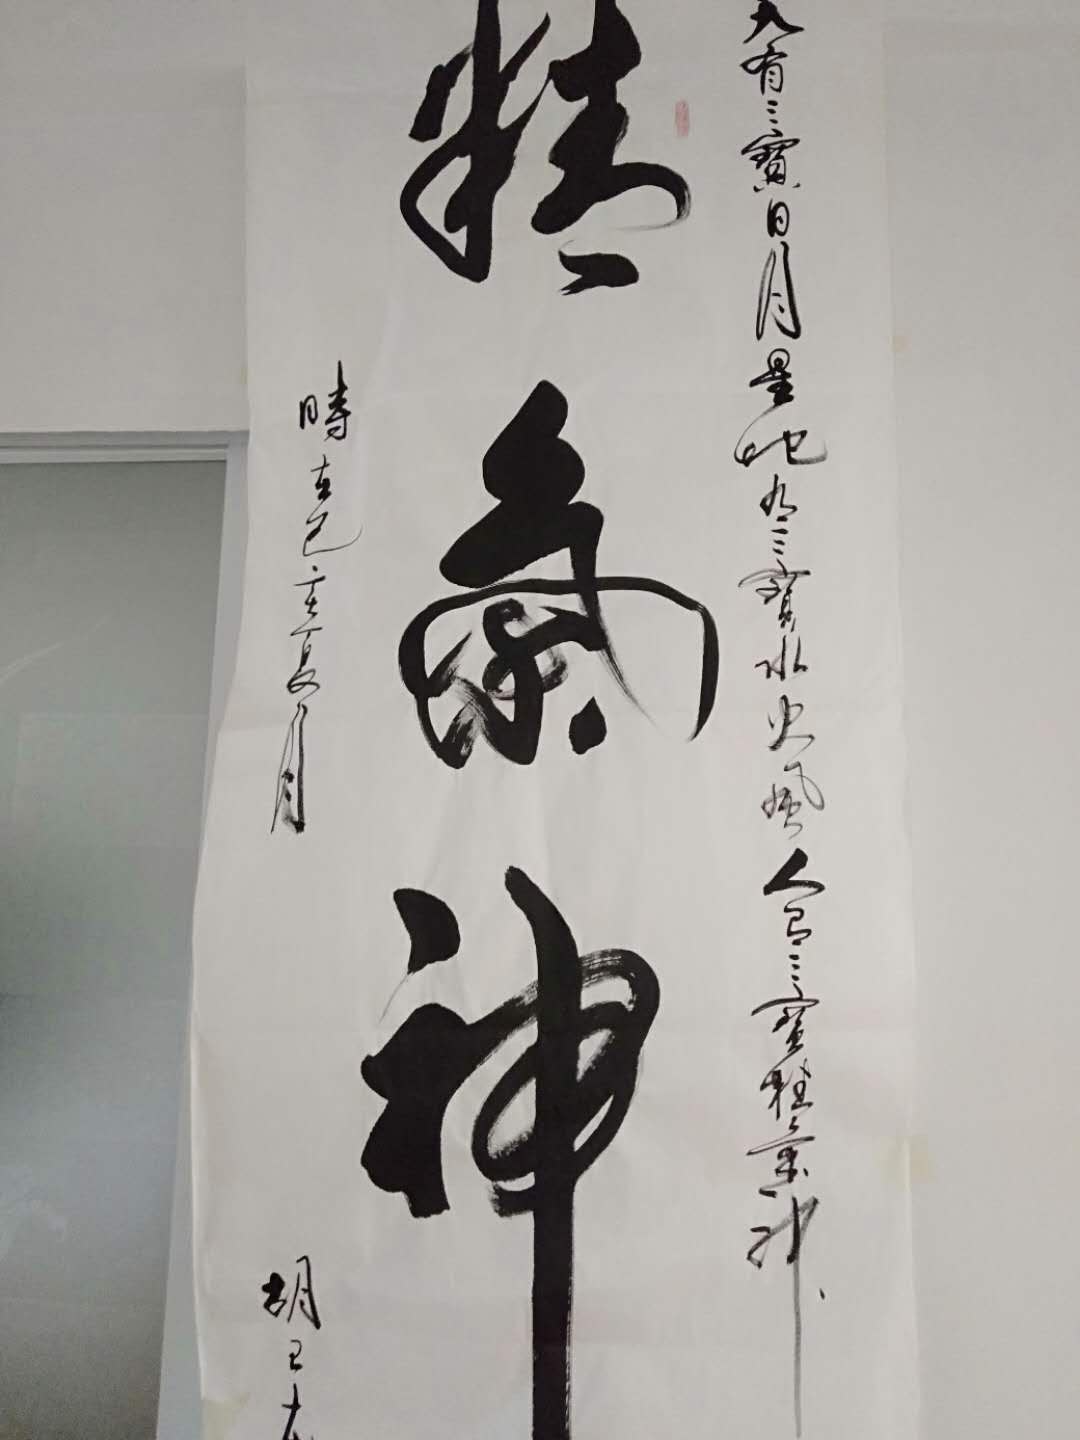 天有三寳日月星地有三寳水火風人有三寳精氣神
精氣神
時在己亥夏月
胡